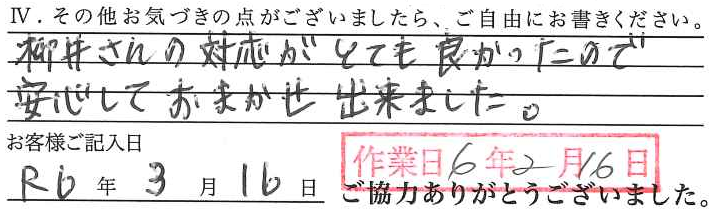 Ⅳ．その他お気づきの点がございましたら、ご自由にお書きください。
柳井さんの対応がとても良かったので
安心しておまかせ出来ました。
お客様ご記入日
R6年3月16日
作業日6年2月16日
ご協力ありがとうございました。